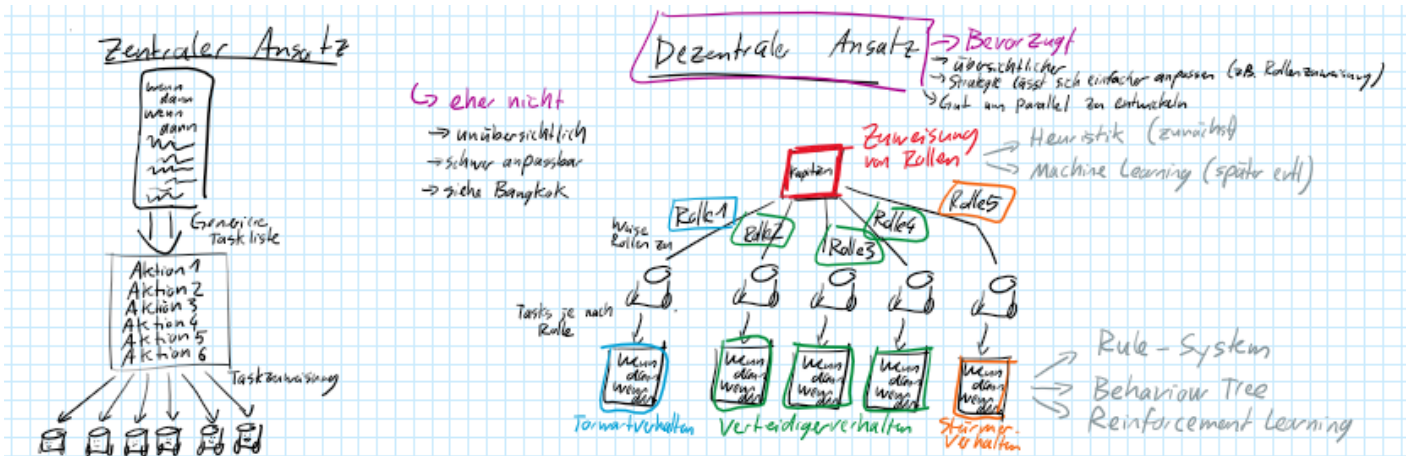 Zentraler Ansatz
wenn
dann
wenn
dann
Generiere
Taskliste
Aktion 1
Aktion 2
Aktion 3
Aktion 4
Aktion 5
Aktion 6
Taskzuweisung
↳ eher nicht
→ unübersichtlich
→ schwer anpassbar
→ siehe Bangkok
Dezentraler Ansatz
→ Bevorzugt
→ übersichtlicher
→ Strategie lässt sich einfacher anpassen (z.B. Rollenzuweisung)
→ Gut um parallel zu entwickeln
Kapitän
Zuweisung
von Rollen
Heuristik (zunächst)
Machine Learning (später evtl)
Weise
Rollen zu
Rolle1
Rolle2
Rolle3
Rolle4
Rolle5
Tasks je nach
Rolle
wenn
dann
wenn
dann
wenn
dann
wenn
dann
wenn
dann
wenn
dann
wenn
dann
wenn
dann
wenn
dann
wenn
dann
Torwartverhalten
Verteidigerverhalten
Stürmer-
verhalten
Rule-System
Behaviour Tree
Reinforcement Learning